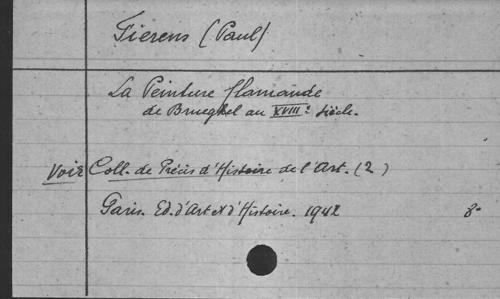 Fierens (Paul)
La Peinture flamande
de Brueghel au XVIIIe siècle.
Voir Coll. de Précis d'Histoire de l'Art. (2)
Paris. Ed. d'Art et d'Histoire. 1942 8°